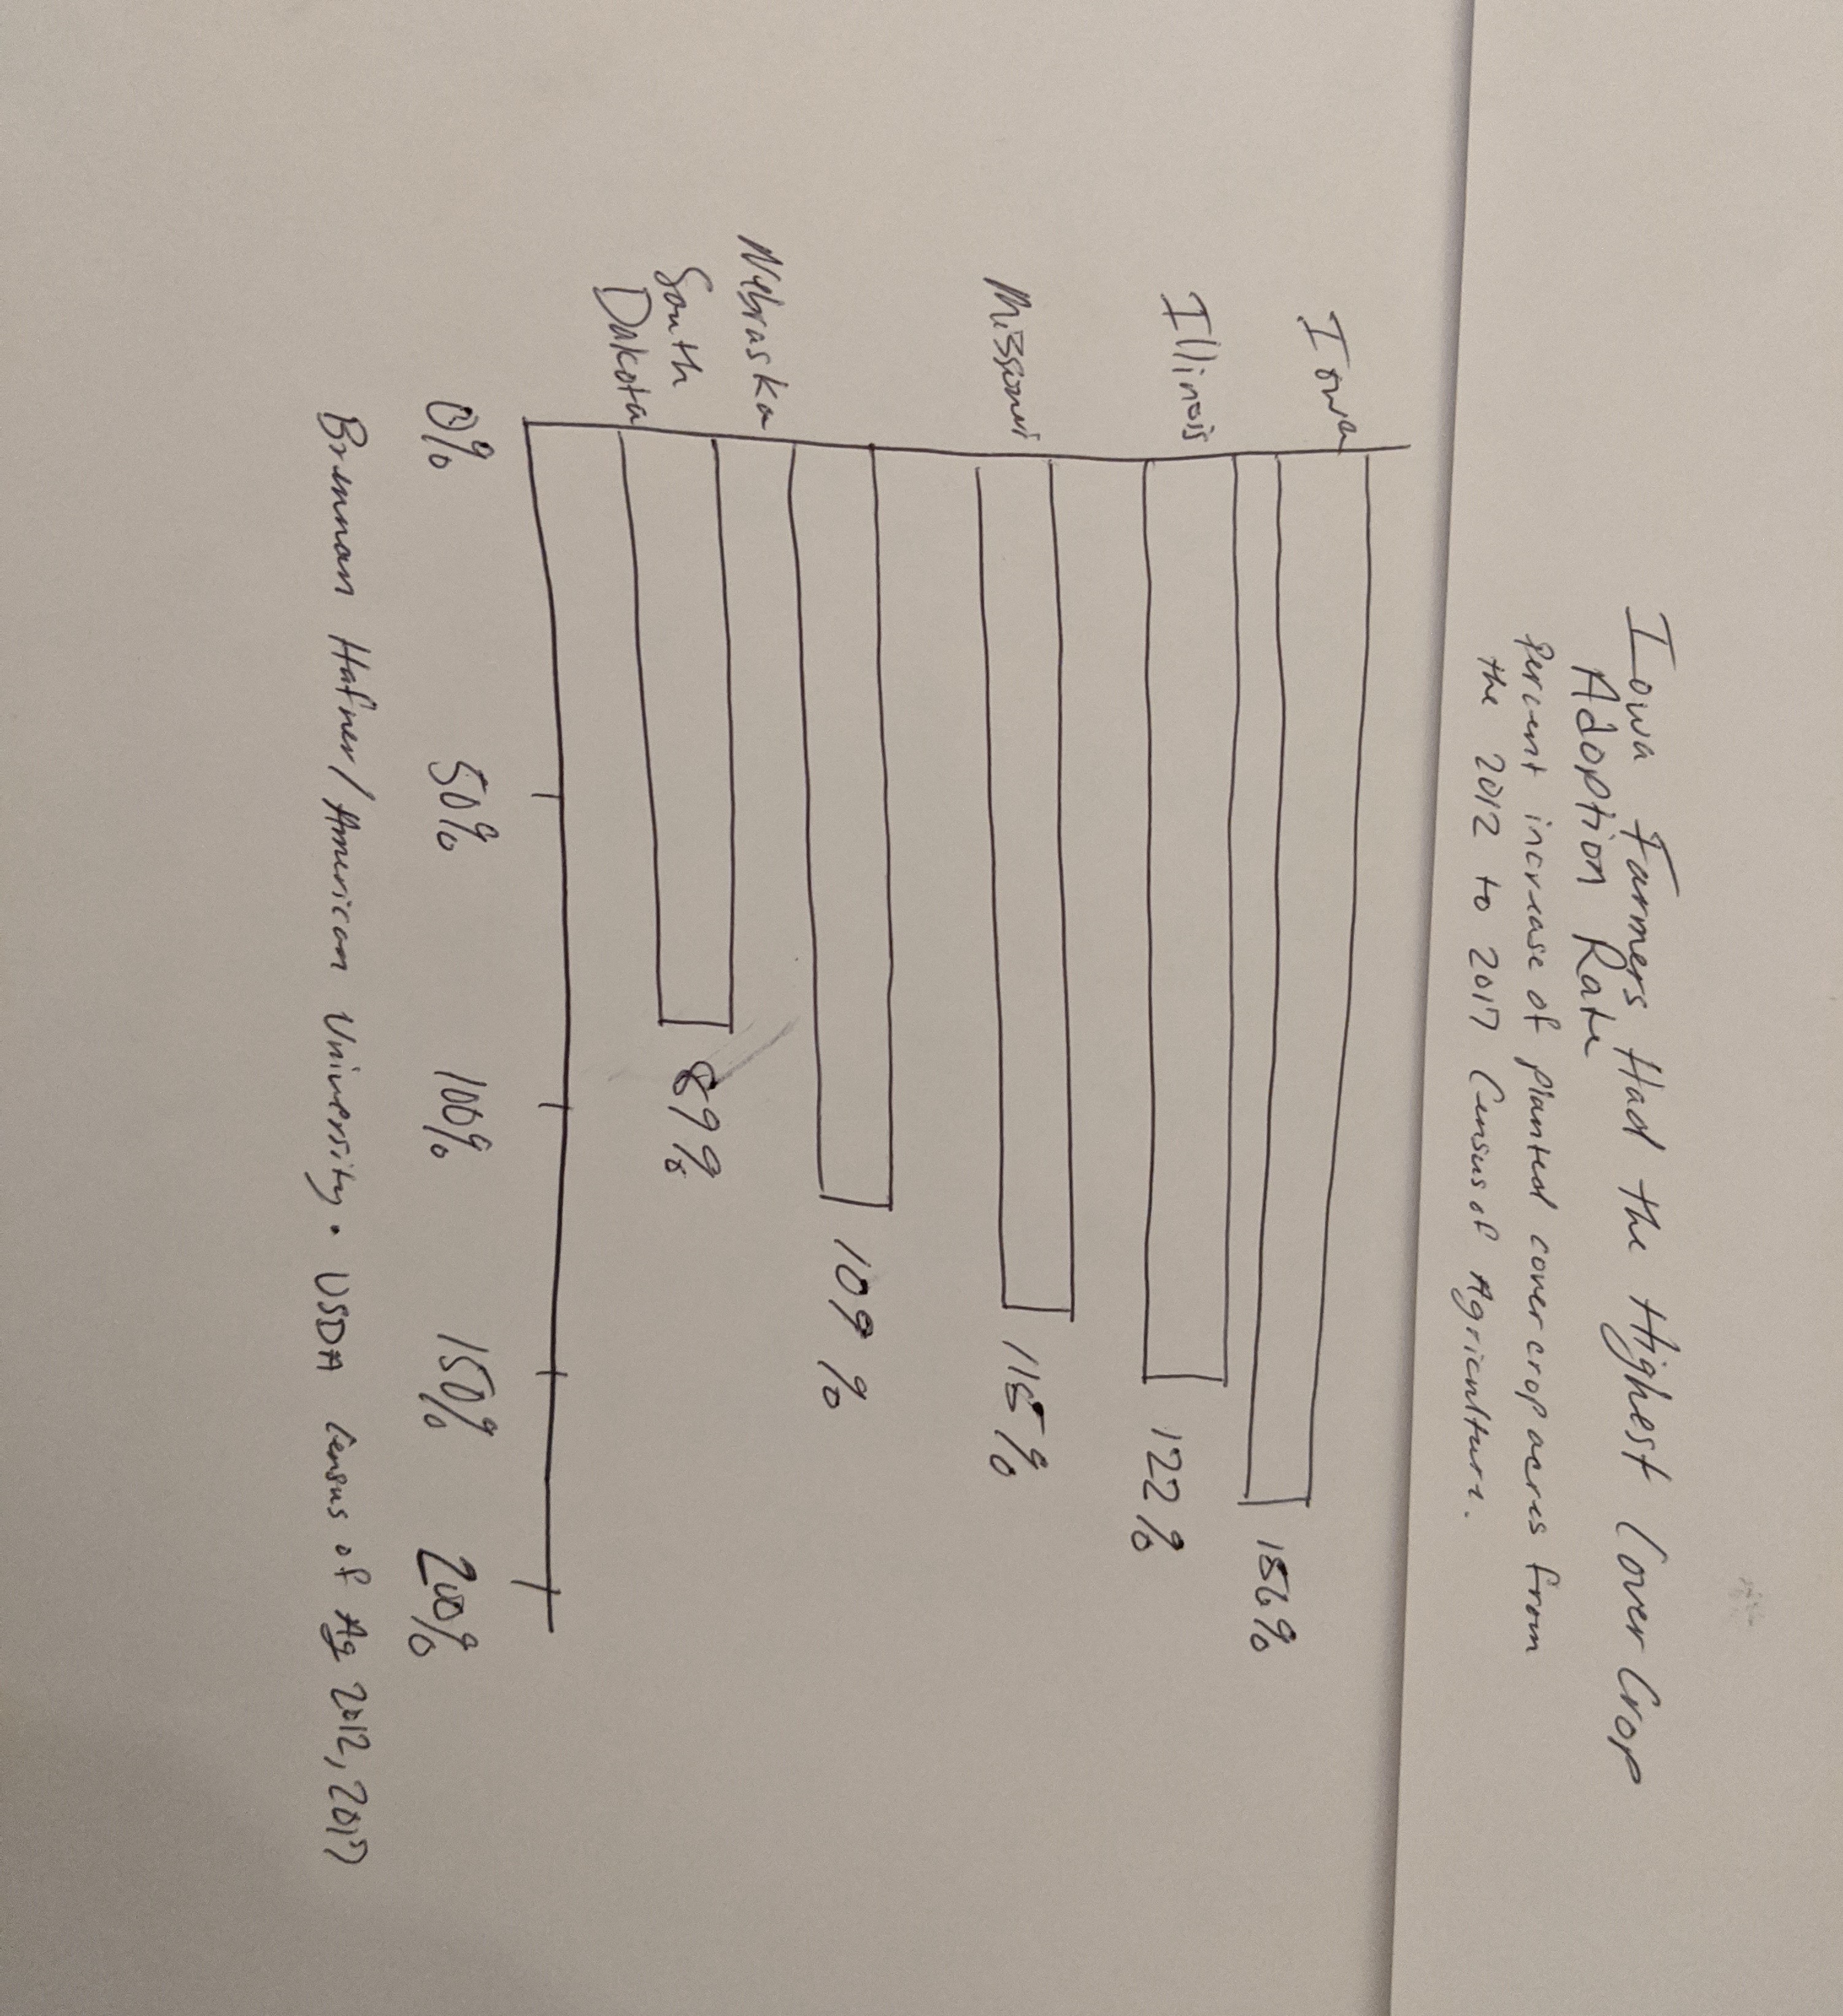 Iowa Farmers Had the Highest Cover Crop
Adoption Rate
Percent increase of planted cover crop acres from
the 2012 to 2017 Census of Agriculture.
Iowa 156%
Illinois 122%
Missouri 115%
Nebraska 109%
South
Dakota 89%
0% 50% 100% 150% 200%
Brennan Hafner/American University. USDA Census of Ag 2012, 2017